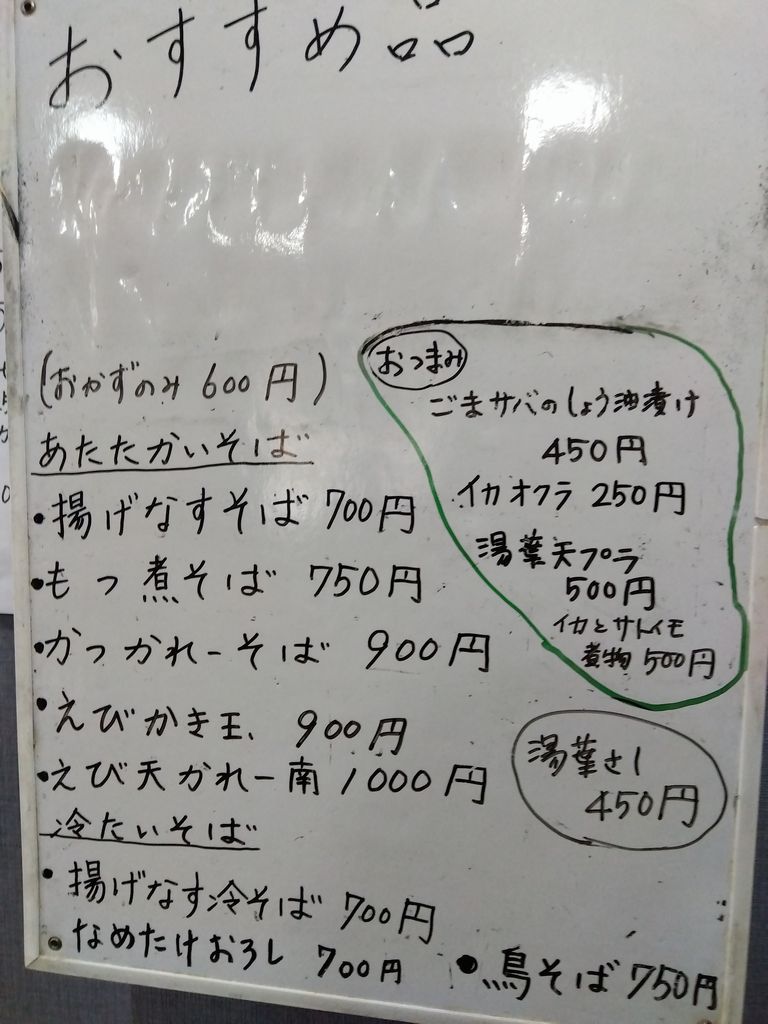 おすすめ品
(おかずのみ 600円)
あたたかいそば
・揚げなすそば 700円
・もつ煮そば 750円
・かつかれーそば 900円
・えびかき玉 900円
・えび天かれー南 1000円
冷たいそば
・揚げなす冷そば 700円
なめたけおろし 700円
・鳥そば 750円
おつまみ
ごまサバのしょう油漬け
450円
イカオクラ 250円
湯葉天プラ
500円
イカとサトイモ
煮物 500円
湯葉さし
450円